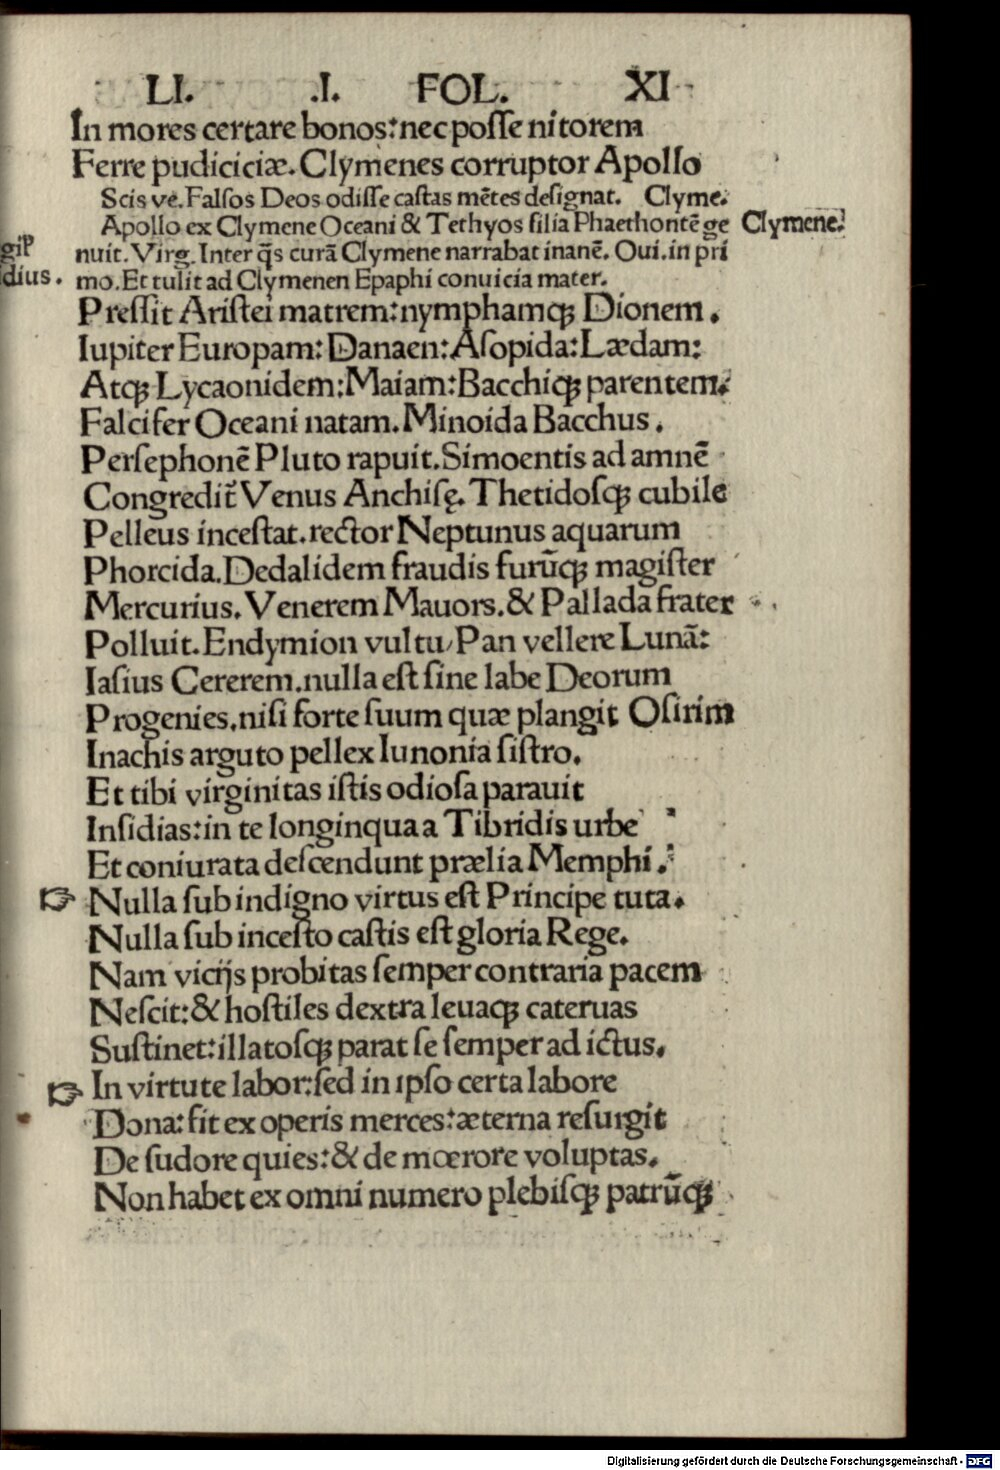 LI. .I. FOL. XI
In mores certare bonos: nec posse nitorem
Ferre pudiciciæ. Clymenes corruptor Apollo
Scis ve. Falsos Deos odisse castas mētes designat. Clyme.
Apollo ex Clymene Oceani & Tethyos filia Phaethontē ge Clymene.
nuit. Virg. Inter q̄s curā Clymene narrabat inanē. Oui. in pri
dius. mo. Et tulit ad Clymenen Epaphi conuicia mater.
Pressit Aristei matrem: nymphamqꝫ Dionem.
Iupiter Europam: Danaen: Asopida: Lædam:
Atqꝫ Lycaonidem: Maiam: Bacchiqꝫ parentem.
Falcifer Oceani natam. Minoida Bacchus.
Persephonē Pluto rapuit. Simoentis ad amnē
Congredit̄ Venus Anchisę. Thetidosqꝫ cubile
Pelleus incestat. rector Neptunus aquarum
Phorcida. Dedalidem fraudis furūqꝫ magister
Mercurius. Venerem Mauors. & Pallada frater
Polluit. Endymion vultu/ Pan vellere Lunā:
Iasius Cererem. nulla est sine labe Deorum
Progenies. nisi forte suum quæ plangit Osirim
Inachis arguto pellex Iunonia sistro.
Et tibi virginitas istis odiosa parauit
Insidias: in te longinqua a Tibridis urbe
Et coniurata descendunt prælia Memphi.
☞ Nulla sub indigno virtus est Principe tuta.
Nulla sub incesto castis est gloria Rege.
Nam vicijs probitas semper contraria pacem
Nescit: & hostiles dextra leuaqꝫ cateruas
Sustinet: illatosqꝫ parat se semper ad ictus.
☞ In virtute labor: sed in ipso certa labore
Dona: fit ex operis merces: æterna resurgit
De sudore quies: & de mœrore voluptas.
Non habet ex omni numero plebisqꝫ patrūqꝫ
Digitalisierung gefördert durch die Deutsche Forschungsgemeinschaft - DFG